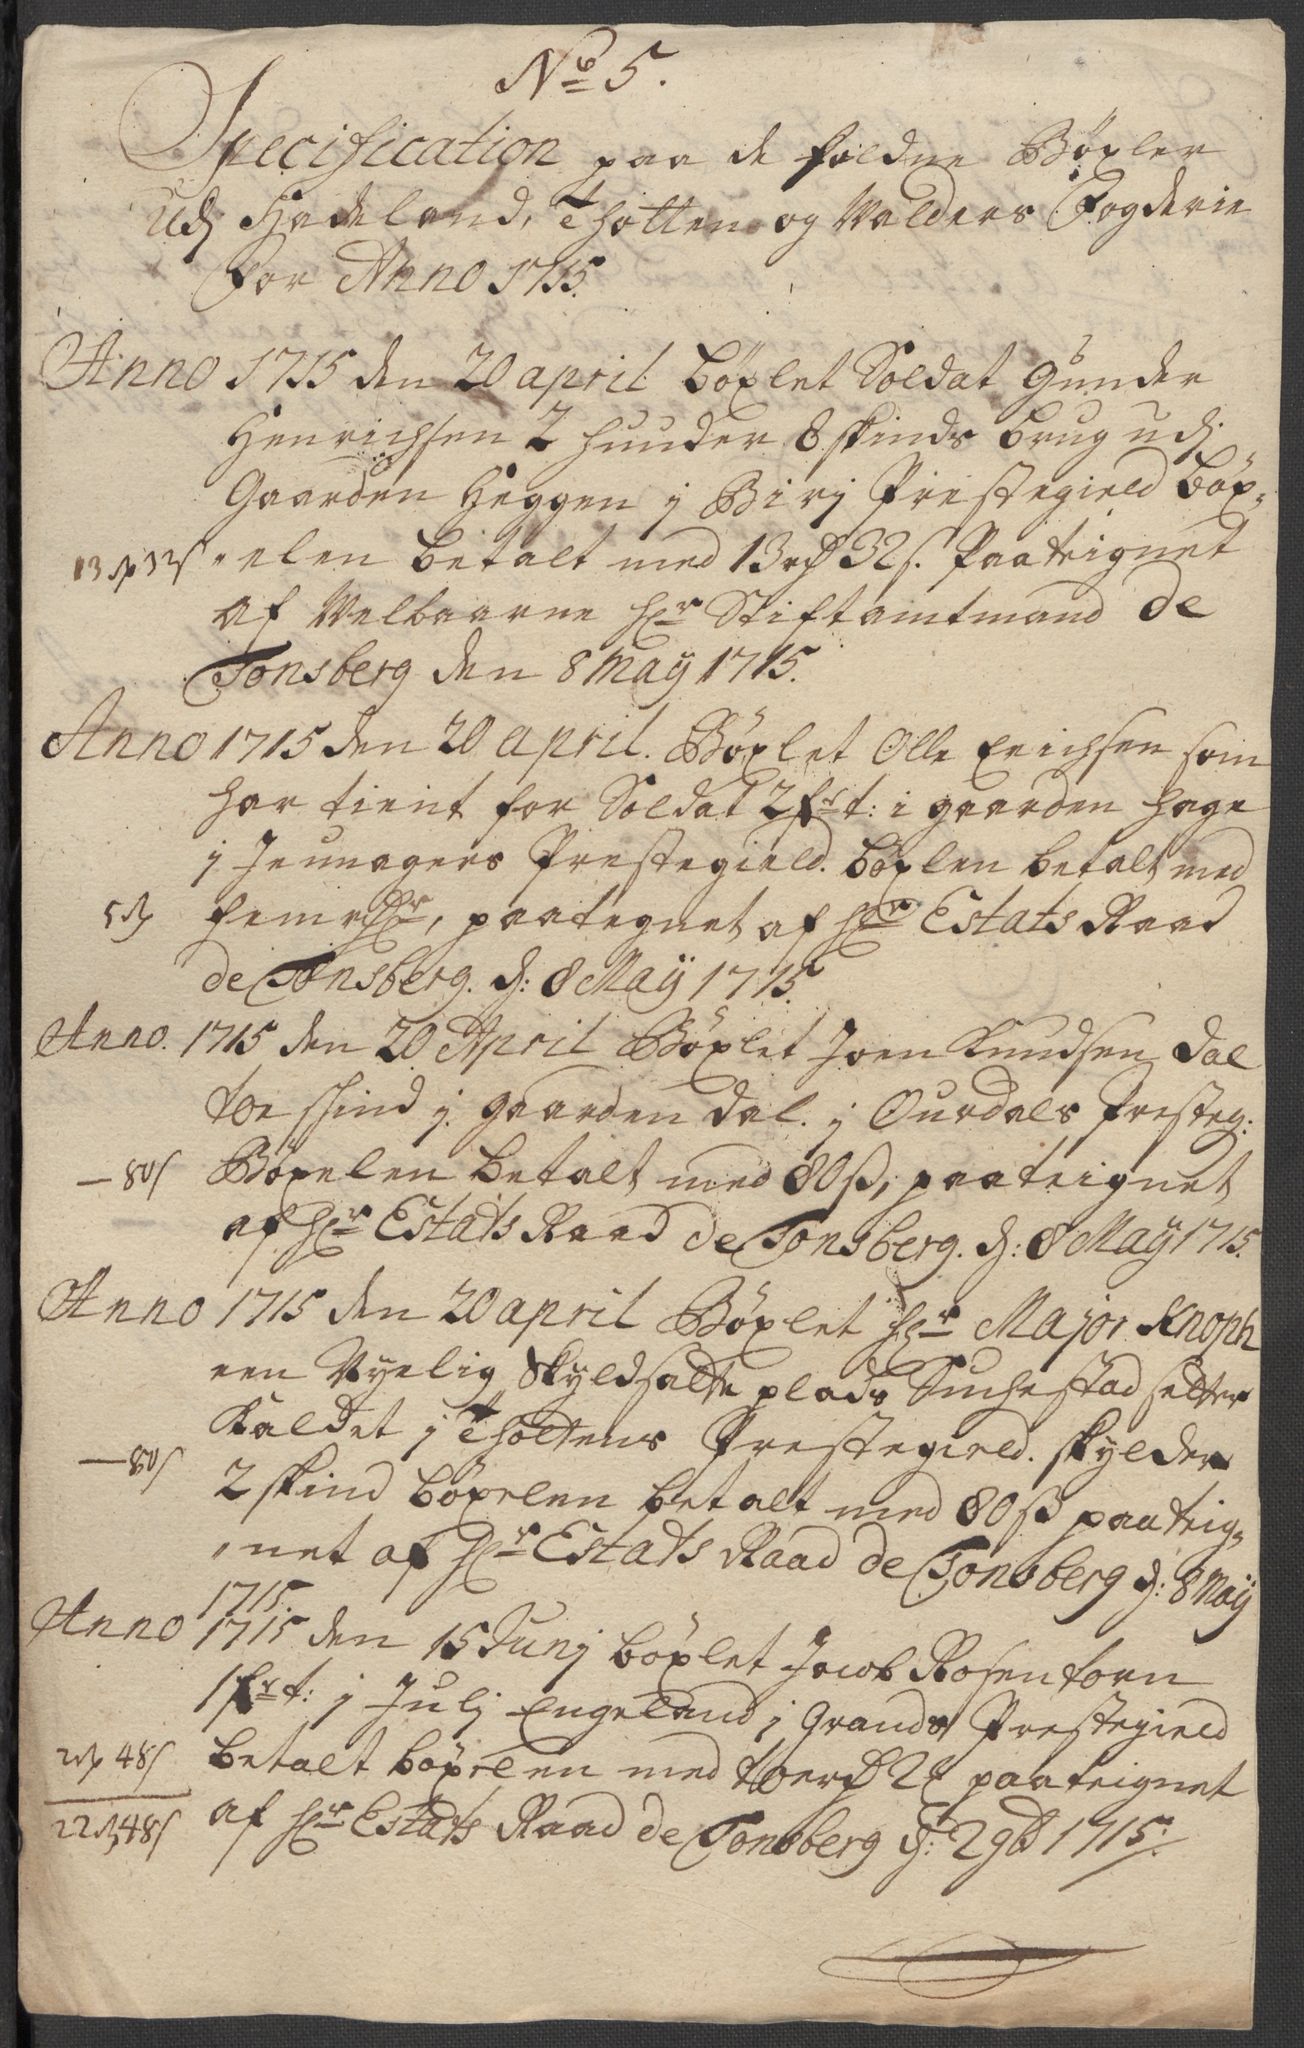 No 5.
Specification paa de faldne Böxler
udj Hadeland, Thotten og Walders Fogderie
For Anno 1715.
Anno 1715 den 20 april böxlet Soldat Gunder
Henrichsen 2 huuder 8 skinds brug udj
Gaarden Heggen j Birj Prestegield Böx-
13 rd 32 s elen betalt med 13 rd 32 s. Paateignet
af Welbaarne Hr Stiftamtmand de
Tonsberg den 8 May 1715.
Anno 1715 den 20 april. Böxlet Olle Erichsen som
har tient for Soldat 2 frt: i gaarden Hage
j Jeunagers Prestegield. böxlen betalt med
5 rd fem rdr, paategnet af Hr Estats Raad
de Tonsberg. d: 8 May 1715.
Anno. 1715 den 20 April Böxlet Joen Knudsen Dal
toe skind j gaarden Dal. j Ourdals Presteg:
— 80 s Böxelen betalt med 80 ß, paateignet
af Hr Estats Raad de Tonsberg. d: 8 May 1715.
Anno 1715 den 20 april Böxlet Hr Major Knoph
een Nyelig Skyldsatte plads Suchestad setter
Kaldet j Thottens Prestegield. skylder
— 80 s 2 skind böxelen betalt med 80 ß paateig-
net af Hr Estats Raad de Tonsberg d: 8 May
1715.
Anno 1715 den 15 Junj böxlet Jacob Rosentorn
1 frt: j Julj Engeland j Grands Prestegield
2 rd 48 s betalt böxelen med toe rd 2 paateignet
22 rd 48 s af Hr Estats Raad de Tonsberg d: 2 9b 1715.